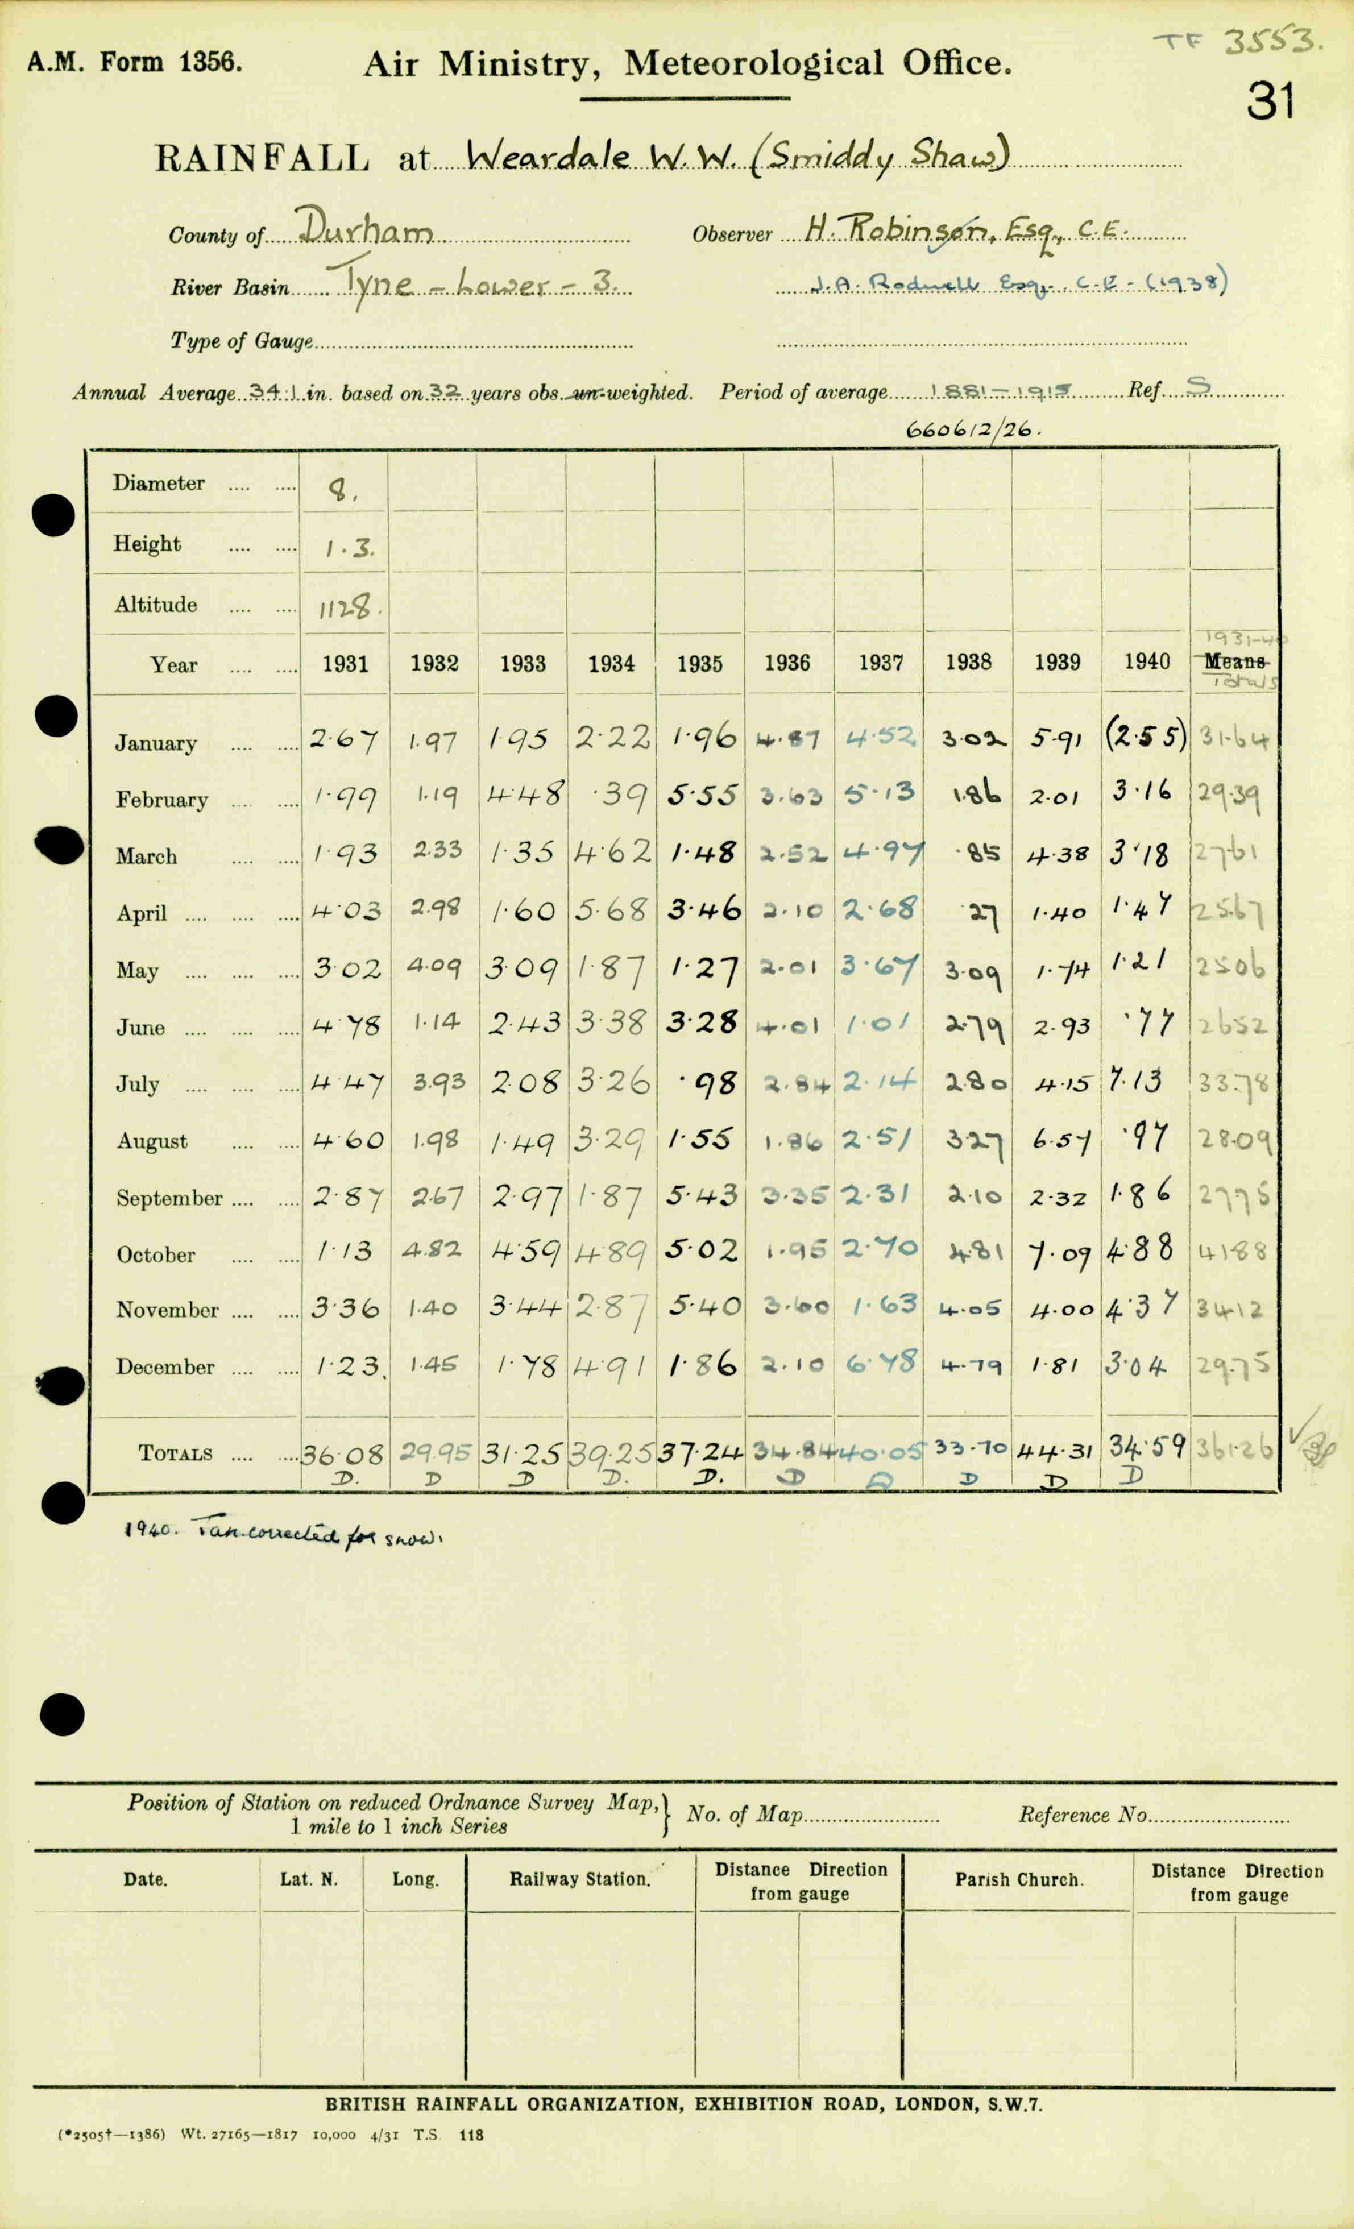 TF 3553.
A.M. Form 1356. Air Ministry, Meteorological Office.
31
RAINFALL at Weardale W.W. (Smiddy Shaw)
County of Durham Observer H. Robinson, Esq., C.E.
River Basin Tyne - Lower - 3. J.A. Rodwell Esq. C.E. (1938)
Type of Gauge
Annual Average 34.1 in. based on 32 years obs. un-weighted. Period of average 1881-1915 Ref. S
660612/26.
Diameter .... .... 8.
Height .... .... 1.3.
Altitude .... .... 1128.
1931-40
Year .... .... 1931 1932 1933 1934 1935 1936 1937 1938 1939 1940 Means
Totals
January .... .... 2.67 1.97 1.95 2.22 1.96 4.87 4.52 3.02 5.91 (2.55) 31.64
February .... .... 1.99 1.19 4.48 .39 5.55 3.63 5.13 1.86 2.01 3.16 29.39
March .... .... 1.93 2.33 1.35 4.62 1.48 2.52 4.97 .85 4.38 3.18 27.61
April .... .... .... 4.03 2.98 1.60 5.68 3.46 2.10 2.68 .27 1.40 1.47 25.67
May .... .... .... 3.02 4.09 3.09 1.87 1.27 2.01 3.67 3.09 1.74 1.21 25.06
June .... .... .... 4.78 1.14 2.43 3.38 3.28 4.01 1.01 2.79 2.93 .77 26.52
July .... .... .... 4.47 3.93 2.08 3.26 .98 2.84 2.14 2.80 4.15 7.13 33.78
August .... .... 4.60 1.98 1.49 3.29 1.55 1.86 2.51 3.27 6.57 .97 28.09
September .... .... 2.87 2.67 2.97 1.87 5.43 3.35 2.31 2.10 2.32 1.86 27.75
October .... .... 1.13 4.82 4.59 4.89 5.02 1.95 2.70 4.81 7.09 4.88 41.88
November .... .... 3.36 1.40 3.44 2.87 5.40 3.60 1.63 4.05 4.00 4.37 34.12
December .... .... 1.23. 1.45 1.78 4.91 1.86 2.10 6.78 4.79 1.81 3.04 29.75
TOTALS .... .... 36.08 29.95 31.25 39.25 37.24 34.84 40.05 33.70 44.31 34.59 361.26
D. D D D. D. D D D D D
1940. Jan. corrected for snow.
Position of Station on reduced Ordnance Survey Map, } No. of Map Reference No.
1 mile to 1 inch Series
Date. Lat. N. Long. Railway Station. Distance Direction from gauge Parish Church. Distance Direction from gauge
BRITISH RAINFALL ORGANIZATION, EXHIBITION ROAD, LONDON, S.W.7.
(*2505†—1386) Wt. 27165—1817 10,000 4/31 T.S. 118